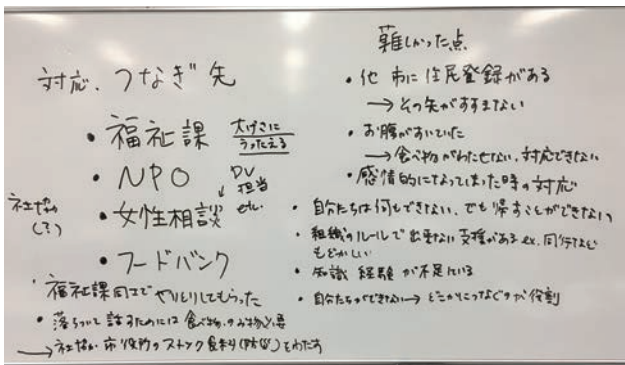 対応、つなぎ先
・福祉課 大げさにうったえる
・NPO DV担当etc.
社協(?)
・女性相談
・フードバンク
福祉課同士でやりとりしてもらった
・落ちついて話すためには食べ物、のみ物必要
→社協か市役所のストック食料(防災)をわたす
難しかった点
・他市に住民登録がある
→その先がすすまない
・お腹がすいていた
→食べ物がわたせない、対応できない
・感情的になってしまった時の対応
・自分たちは何もできない、でも帰すことができない
・組織のルールで出来ない支援がある ex.同行など
もどかしい
・知識 経験が不足している
・自分たちができない→どこかにつなぐのが役割